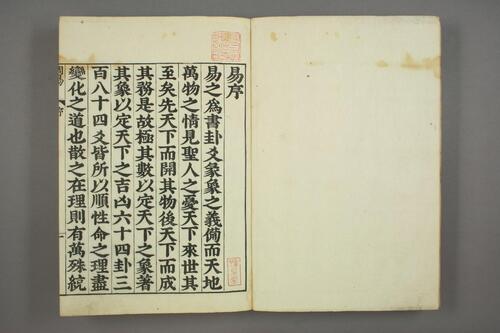 易序
易之爲書卦爻彖象之義備而天地
萬物之情見聖人之憂天下來世其
至矣先天下而開其物後天下而成
其務是故極其數以定天下之象著
其象以定天下之吉凶六十四卦三
百八十四爻皆所以順性命之理盡
變化之道也散之在理則有萬殊統
周易 序 一